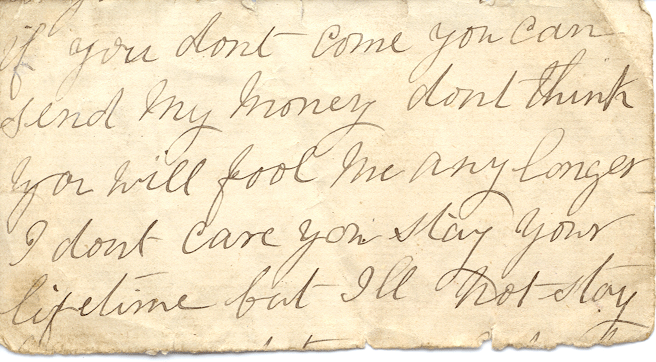 if you dont come you can
send my money dont think
you will fool me any longer
I dont care you stay your
lifetime but Ill not stay